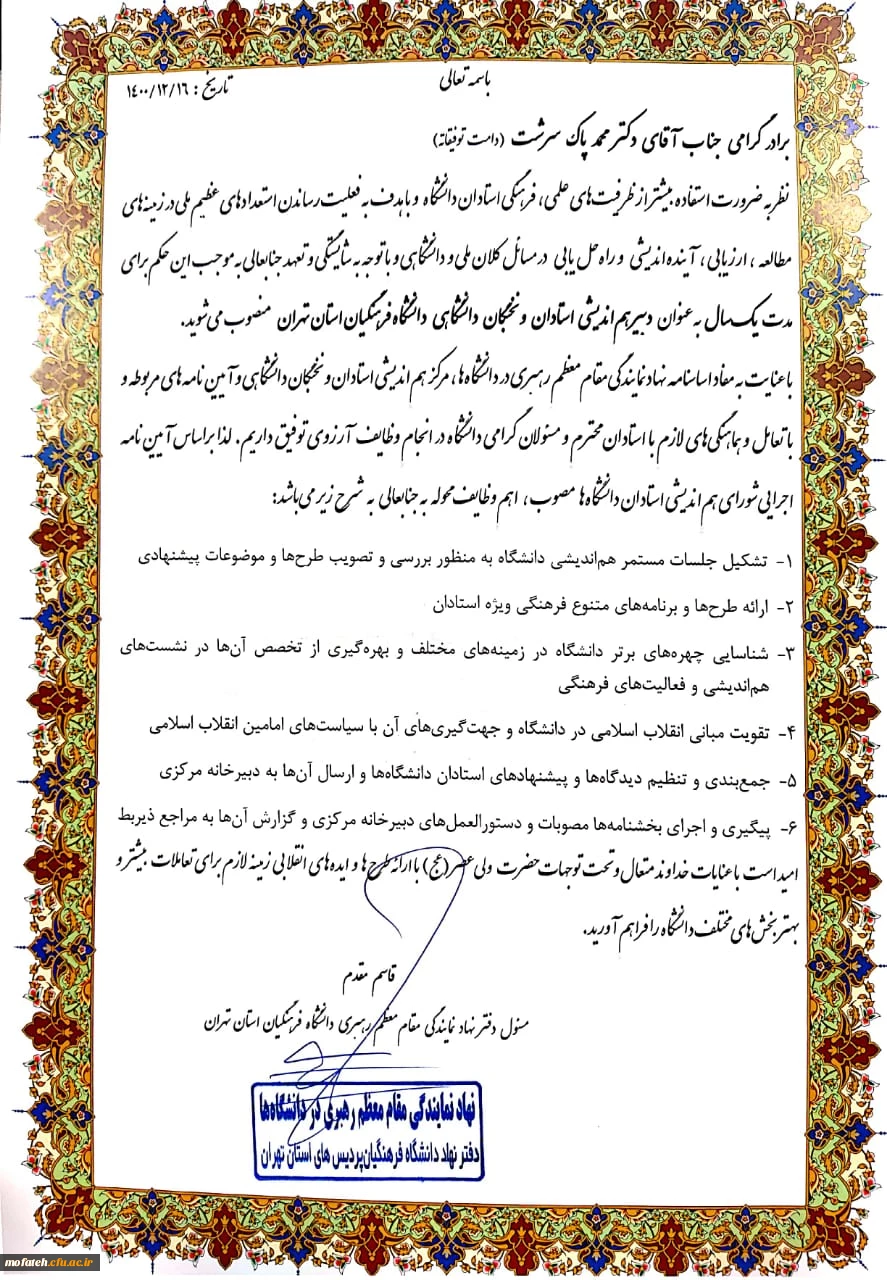 باسمه تعالی
تاریخ : ۱۴۰۰/۱۲/۱۶
برادر گرامی جناب آقای دکتر محمد پاک سرشت (دامت توفیقاته)
نظر به ضرورت استفاده بیشتر از ظرفیت های علمی، فرهنگی استادان دانشگاه و با هدف به فعلیت رساندن استعدادهای عظیم ملی در زمینه های
مطالعه ، ارزیابی ، آینده اندیشی و راه حل یابی در مسائل کلان ملی و دانشگاهی و با توجه به شایستگی و تعهد جنابعالی به موجب این حکم برای
مدت یک سال به عنوان دبیر هم اندیشی استادان و نخبگان دانشگاهی دانشگاه فرهنگیان استان تهران منصوب می شوید.
با عنایت به مفاد اساسنامه نهاد نمایندگی مقام معظم رهبری در دانشگاه ها ، مرکز هم اندیشی استادان و نخبگان دانشگاهی و آیین نامه های مربوطه و
با تعامل و هماهنگی های لازم با استادان محترم و مسئولان گرامی دانشگاه در انجام وظایف آرزوی توفیق داریم. لذا بر اساس آیین نامه
اجرایی شورای هم اندیشی استادان دانشگاه ها مصوب ، اهم وظایف محوله به جنابعالی به شرح زیر می باشد:
۱- تشکیل جلسات مستمر هم‌اندیشی دانشگاه به منظور بررسی و تصویب طرح‌ها و موضوعات پیشنهادی
۲- ارائه طرح‌ها و برنامه‌های متنوع فرهنگی ویژه استادان
۳- شناسایی چهره‌های برتر دانشگاه در زمینه‌های مختلف و بهره‌گیری از تخصص آن‌ها در نشست‌های
هم‌اندیشی و فعالیت‌های فرهنگی
۴- تقویت مبانی انقلاب اسلامی در دانشگاه و جهت‌گیری‌های آن با سیاست‌های امامین انقلاب اسلامی
۵- جمع‌بندی و تنظیم دیدگاه‌ها و پیشنهادهای استادان دانشگاه‌ها و ارسال آن‌ها به دبیرخانه مرکزی
۶- پیگیری و اجرای بخشنامه‌ها مصوبات و دستورالعمل‌های دبیرخانه مرکزی و گزارش آن‌ها به مراجع ذیربط
امید است با عنایات خداوند متعال و تحت توجهات حضرت ولی عصر (عج) با ارائه طرح ها و ایده های انقلابی زمینه لازم برای تعاملات بیشتر و
بهتر بخش های مختلف دانشگاه را فراهم آورید.
قاسم مقدم
مسئول دفتر نهاد نمایندگی مقام معظم رهبری دانشگاه فرهنگیان استان تهران
نهاد نمایندگی مقام معظم رهبری در دانشگاه‌ها
دفتر نهاد دانشگاه فرهنگیان پردیس های استان تهران
mofateh.cfu.ac.ir